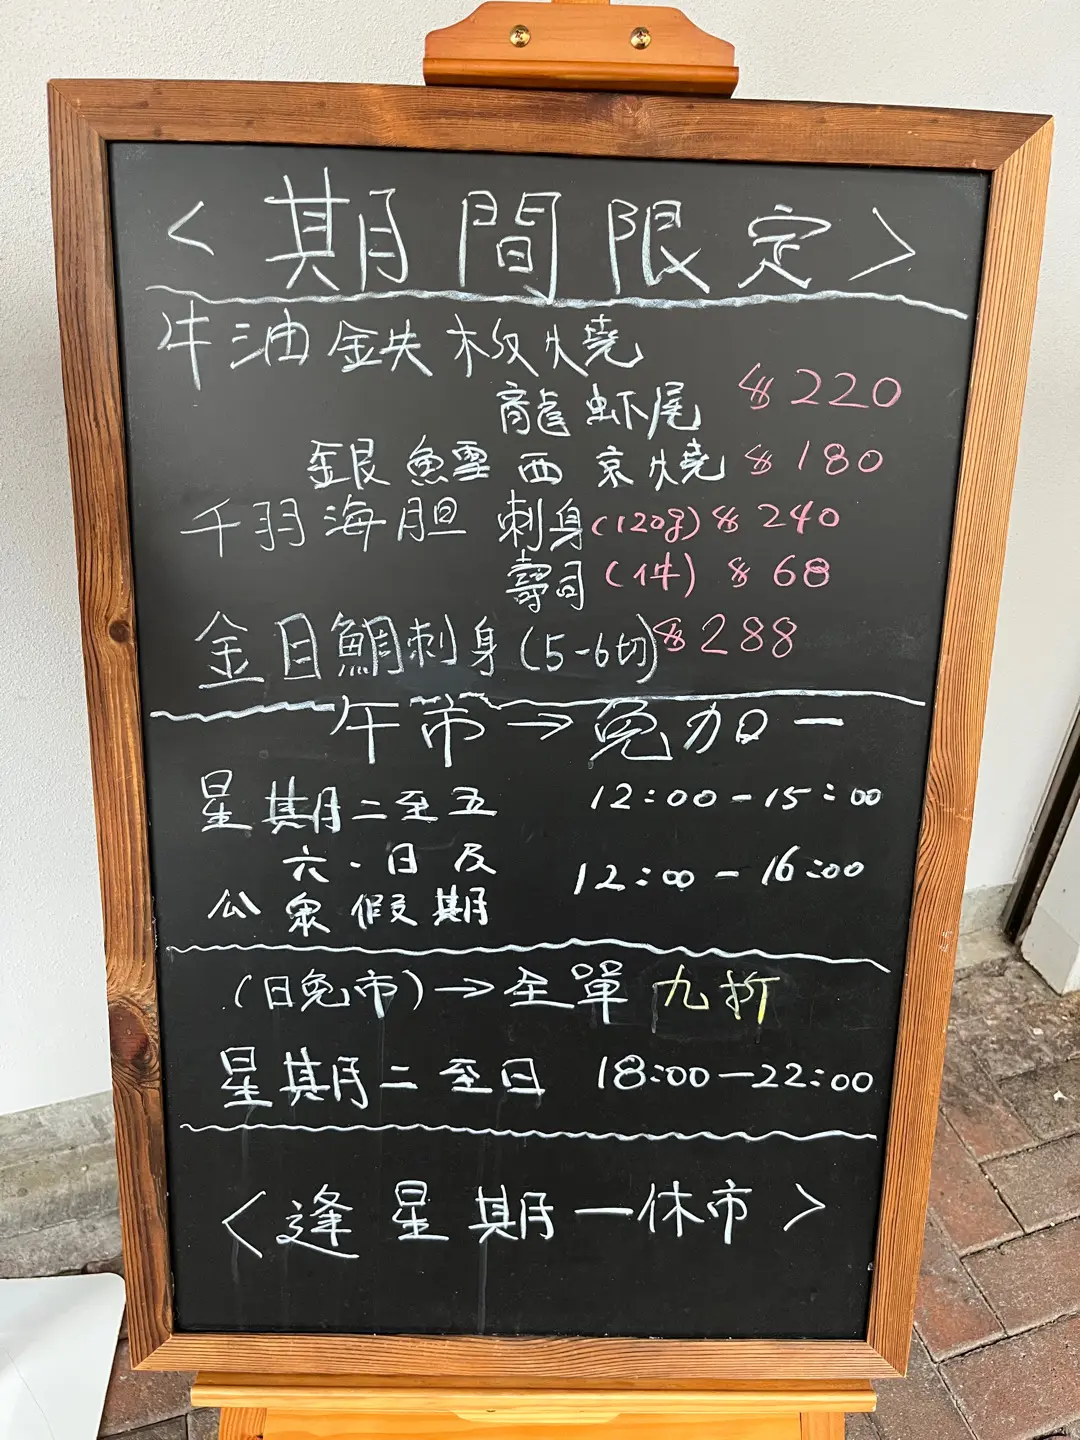 <期間限定>
牛油鉄板燒
龍虾尾 $220
銀魚雪西京燒 $180
千羽海胆 刺身(120g) $240
壽司(1件) $68
金目鯛刺身(5-6切) $288
午市→免加一
星期二至五 12:00-15:00
六、日及
公衆假期 12:00-16:00
(日免市)→全單九折
星期二至日 18:00-22:00
<逢星期一休市>